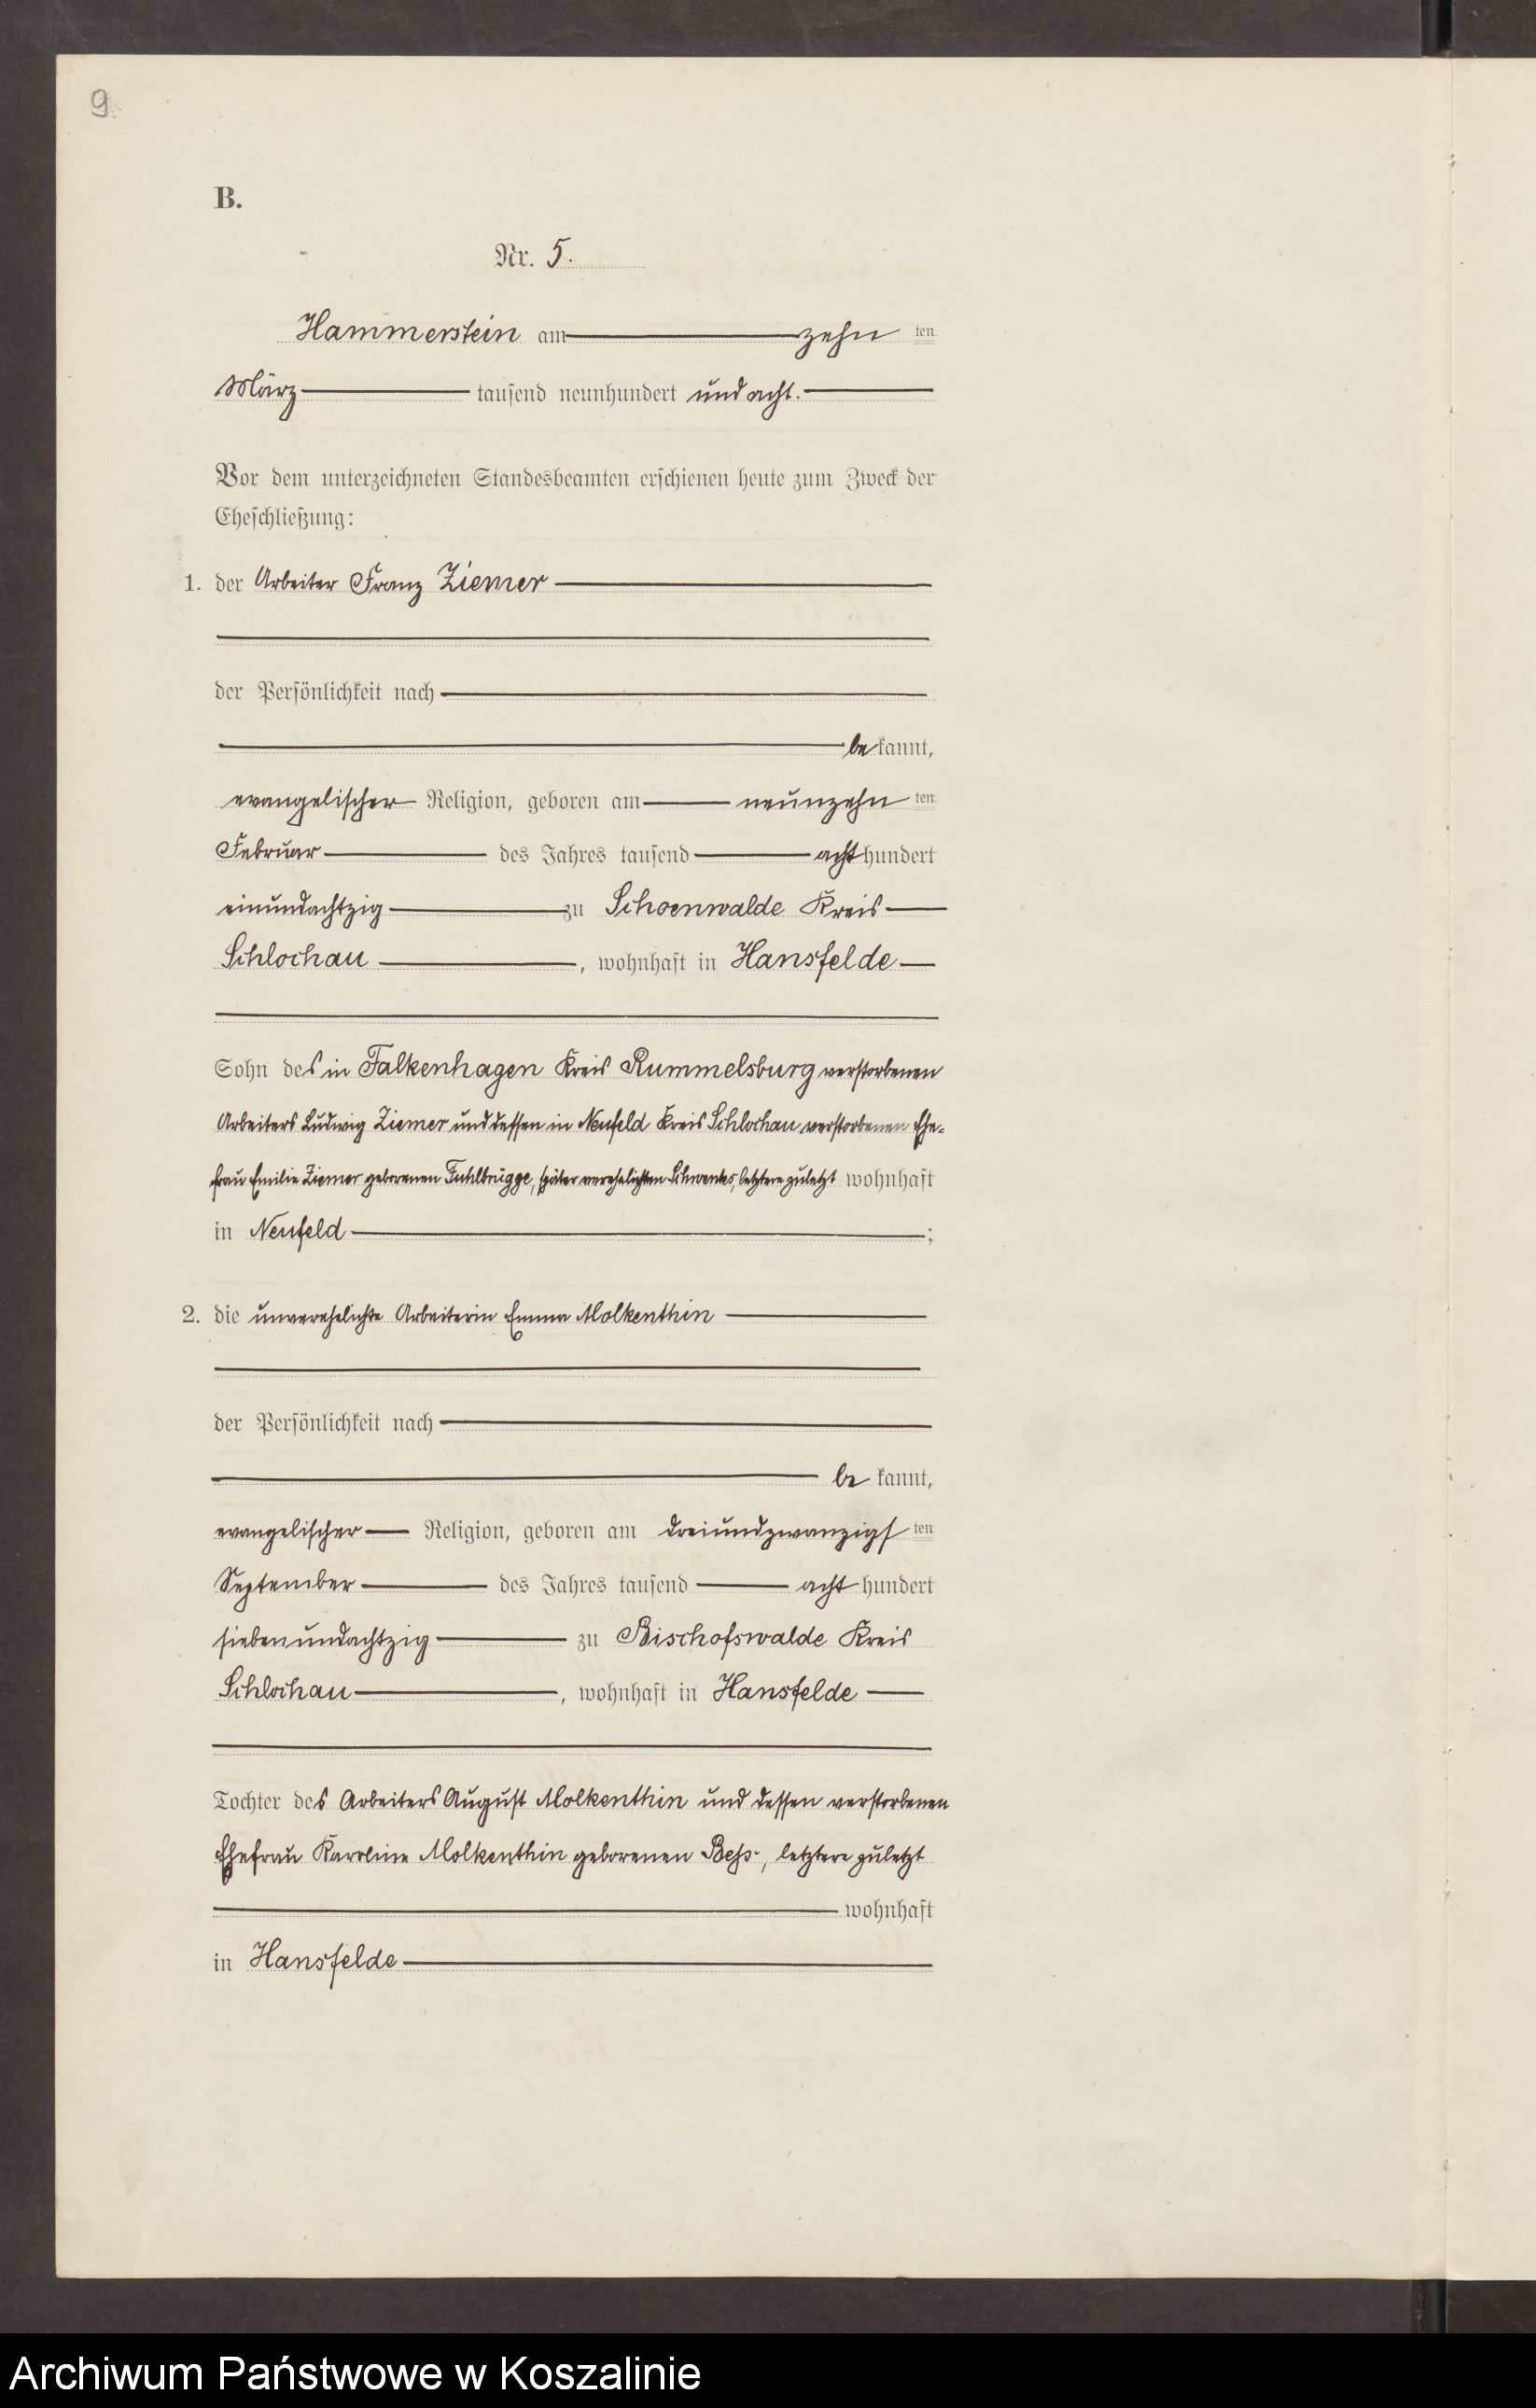 9.
B.
Nr. 5.
Hammerstein am zehn ten
März tausend neunhundert und acht.
Vor dem unterzeichneten Standesbeamten erschienen heute zum Zweck der
Eheschließung:
1. der Arbeiter Franz Ziemer
der Persönlichkeit nach
be kannt,
evangelischer Religion, geboren am neunzehn ten
Februar des Jahres tausend acht hundert
einundachtzig zu Schoenwalde Kreis
Schlochau, wohnhaft in Hansfelde
Sohn des in Falkenhagen Kreis Rummelsburg verstorbenen
Arbeiters Ludwig Ziemer und dessen in Neufeld Kreis Schlochau verstorbenen Ehe-
frau Emilie Ziemer geborenen Fuhlbrügge, später verehelichten letztere zuletzt wohnhaft
in Neufeld ;
2. die unverehelichte Arbeiterin Emma Molkenthin
der Persönlichkeit nach
be kannt,
evangelischer Religion, geboren am dreiundzwanzigs ten
September des Jahres tausend acht hundert
siebenundachtzig zu Bischofswalde Kreis
Schlochau, wohnhaft in Hansfelde
Tochter des Arbeiters August Molkenthin und dessen verstorbenen
Ehefrau Karoline Molkenthin geborenen letztere zuletzt
wohnhaft
in Hansfelde
Archiwum Państwowe w Koszalinie